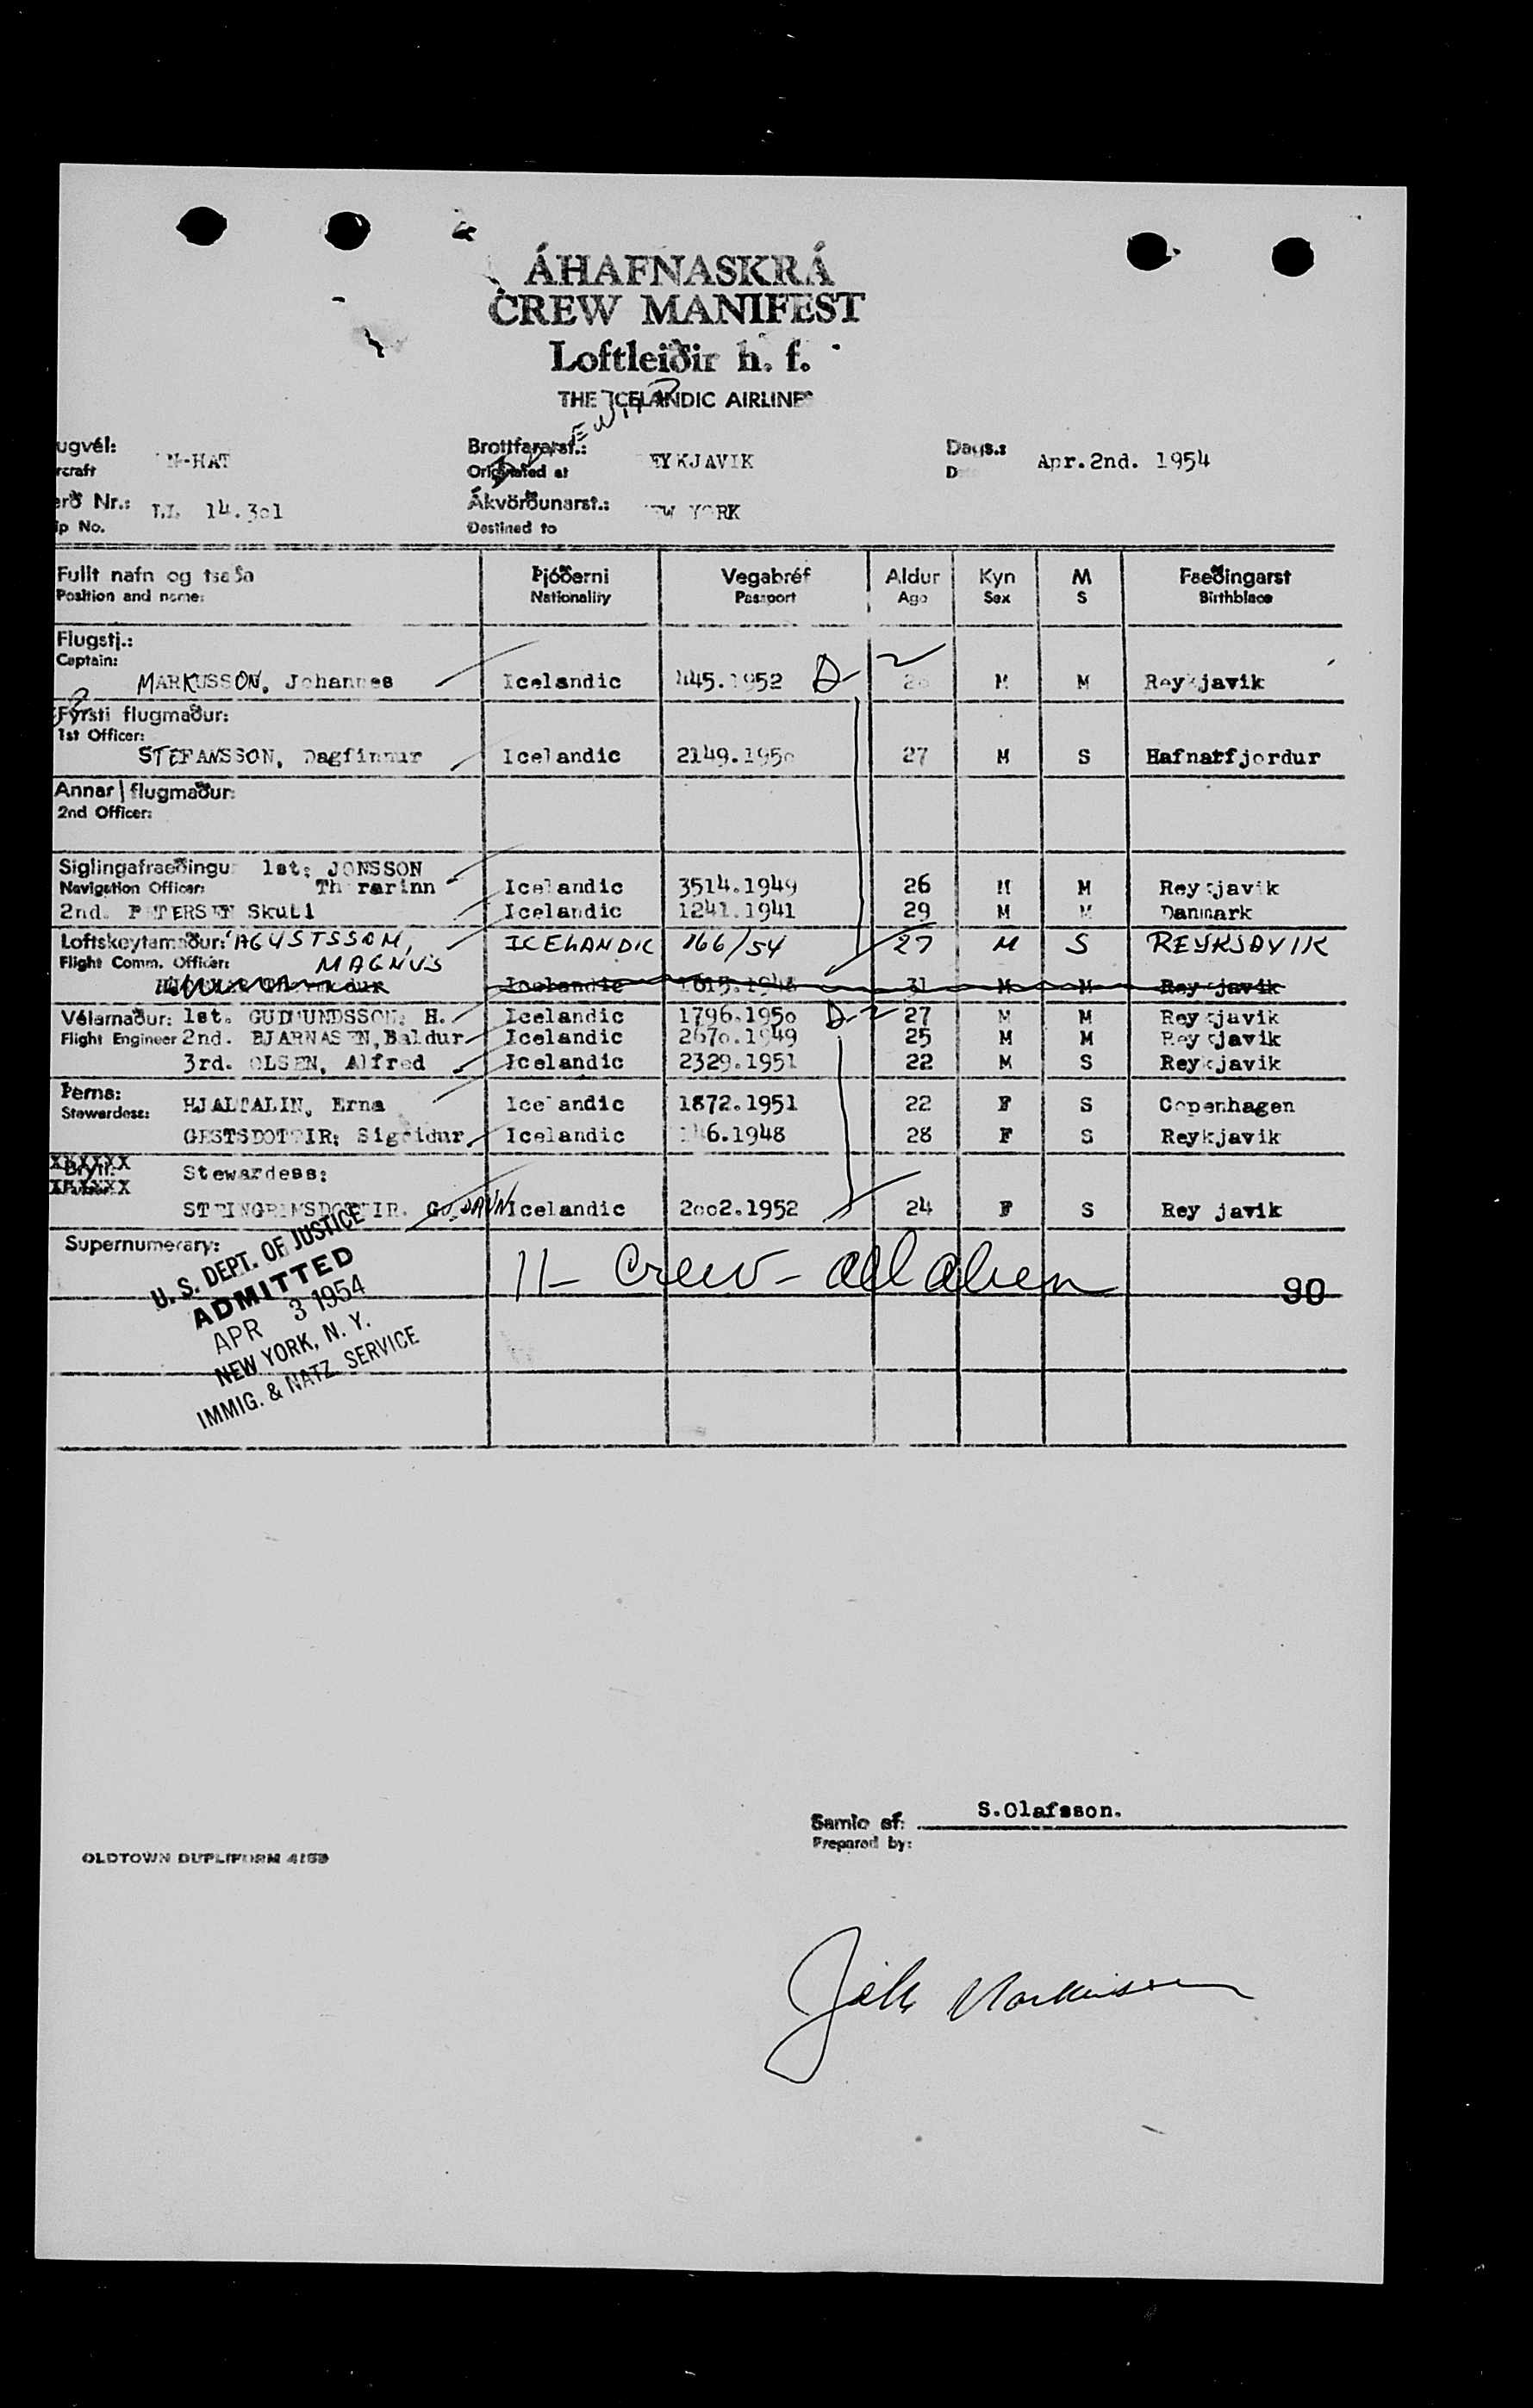 ÁHAFNASKRÁ
CREW MANIFEST
Loftleiðir h. f.
THE ICELANDIC AIRLINES
ugvél: N-HAT Brottfararst.: EYKJAVIK Dags.: Apr.2nd. 1954
rcraft Originated at D
erð Nr.: LL 14.301 Ákvörðunarst.: EW YORK
ip No. Destined to
Fullt nafn og staða Þjóðerni Vegabréf Aldur Kyn M Faeðingarst
Position and name: Nationality Passport Age Sex S Birthblace
Flugstj.:
Captain:
MARKUSSON, Johannes Icelandic 445.1952 D-2 M M Reykjavik
Fyrsti flugmaður:
1st Officer:
STEFANSSON, Dagfinnur Icelandic 2149.1950 27 M S Hafnatfjordur
Annar flugmaður:
2nd Officer:
Siglingafraeðingur 1st; JONSSON
Navigation Officer: Thorarinn Icelandic 3514.1949 26 M M Reykjavik
2nd. PETERSEN Skuli Icelandic 1241.1941 29 M M Danmark
Loftskeytamaður: AGUSTSSON, ICELANDIC 166/54 27 M S REYKJAVIK
Flight Comm. Officer: MAGNUS
Icelandic 1615.1948 31 M M Reykjavik
Vélamaður: 1st. GUDMUNDSSON; H. Icelandic 1796.1950 D-2 27 M M Reykjavik
Flight Engineer 2nd. BJARNASEN, Baldur Icelandic 2670.1949 25 M M Reykjavik
3rd. OLSEN, Alfred Icelandic 2329.1951 22 M S Reykjavik
Þerna:
Stewardess: HJALTALIN, Erna Icelandic 1872.1951 22 F S Copenhagen
GESTSDOTTIR; Sigridur Icelandic 46.1948 28 F S Reykjavik
XXXXXX Stewardess:
XXXXXX
STEINGRIMSDOTTIR. GUDRUN Icelandic 2002.1952 24 F S Rey javik
Supernumerary: 11- Crew - all alien 90
U. S. DEPT. OF JUSTICE
ADMITTED
APR 3 1954
NEW YORK, N. Y.
IMMIG. & NATZ. SERVICE
Samio af: S.Olafsson.
Prepared by:
OLDTOWN DUPLIFORM 4158
Joh Markusson